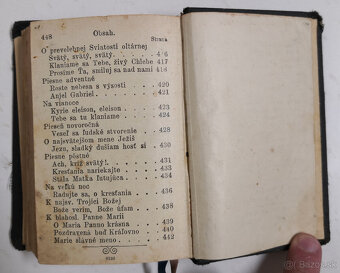 448 Obsah.
Strana
O prevelebnej Sviatosti oltárnej
Svätý, svätý, svätý . . 416
Klaniame sa Tebe, živý Chlebe 417
Prosíme Ťa, smiluj sa nad nami 418
Piesne adventné
Roste nebesa s výsosti . . 420
Anjel Gabriel . . . 421
Na vianoce
Kyrie eleison, eleison . . 423
Tebe sa tu klaniame . . 424
Pieseň novoročná
Vesel sa ľudské stvorenie . 428
O najsvätejšom mene Ježiš
Jezu, sladký dušiam hosť si . 430
Piesne pôstné
Ach, kríž svätý! . . . 431
Kresťania nariekajte . . 433
Stála Matka ľutujúca . . 434
Na veľkú noc
Radujte sa, o kresťania . . 436
K najsv. Trojici Božej
Bože verím, Bože úfam . . 438
K blahosl. Panne Marii
O Maria Panno krásna . . 439
Pozdravená buď Kráľovno . 440
Marie slávné meno . . . 442